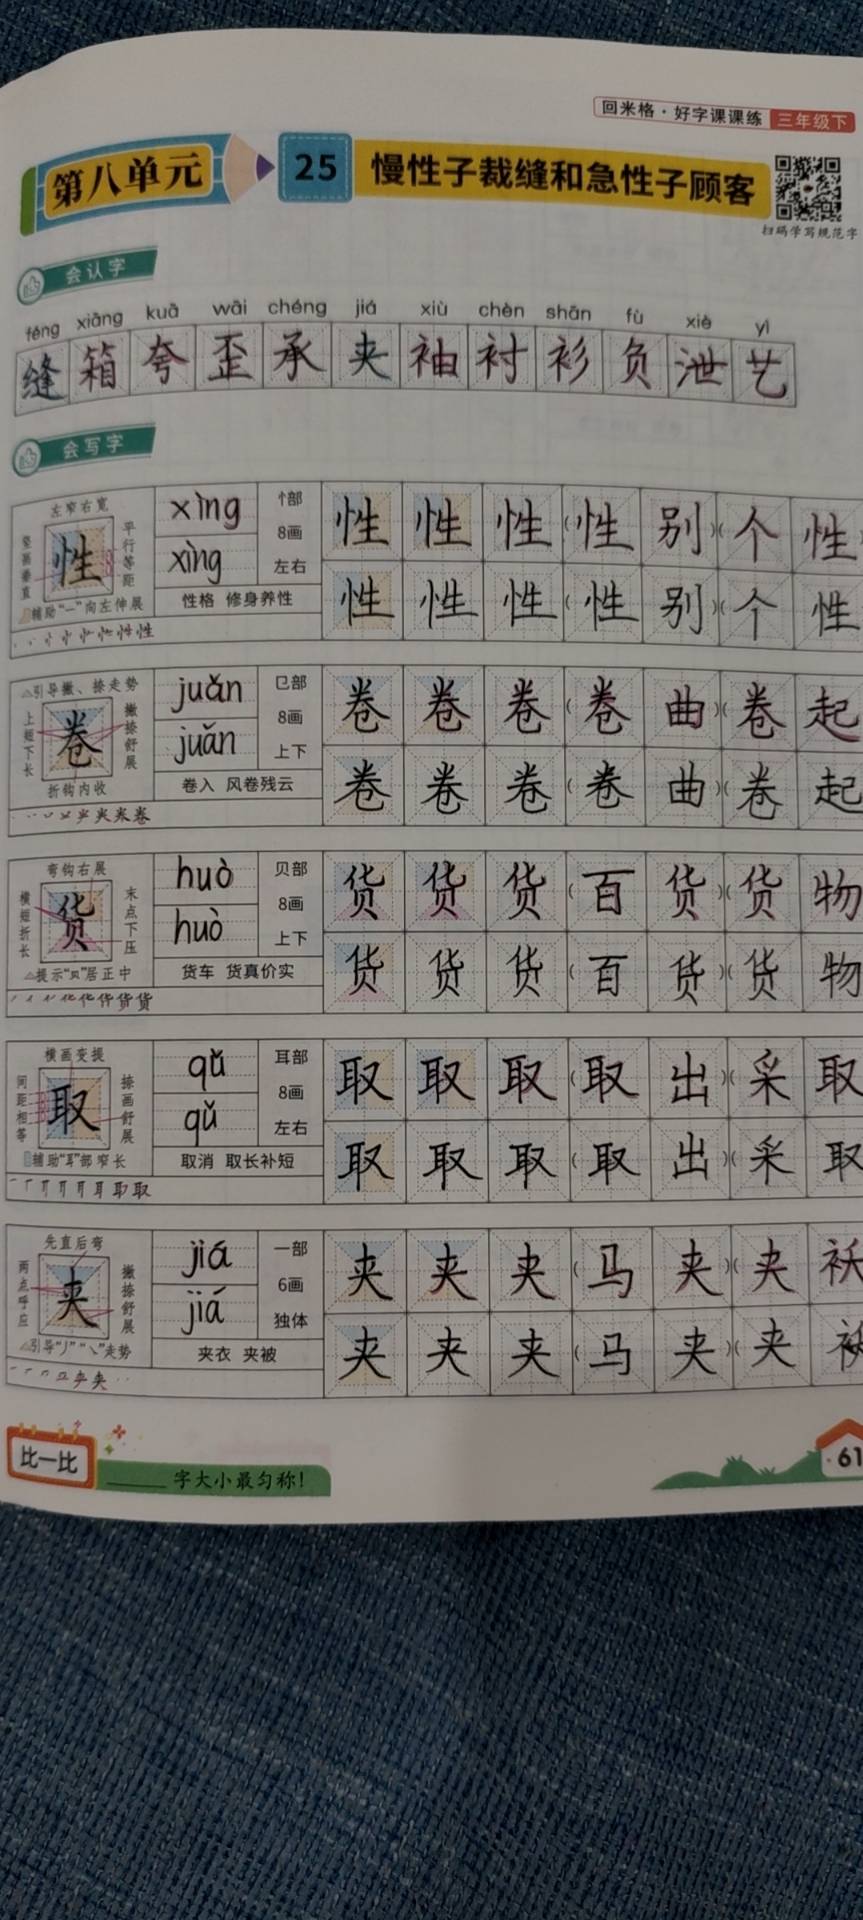 回米格·好字课课练 三年级下
第八单元 25 慢性子裁缝和急性子顾客
扫码学写规范字
会认字
féng xiāng kuā wāi chéng jiá xiù chèn shān fù xiè yì
缝 箱 夸 歪 承 夹 袖 衬 衫 负 泄 艺
会写字
左窄右宽
竖画垂直
性
平行等距
辅助“一”向左伸展
xìng
xìng
忄部
8画
左右
性格 修身养性
性 性 性 (性 别)(个 性
性 性 性 (性 别)(个 性
引导撇、捺走势
上短下长
卷
撇捺舒展
折钩内收
juǎn
juǎn
㔾部
8画
上下
卷入 风卷残云
卷 卷 卷 (卷 曲)(卷 起
卷 卷 卷 (卷 曲)(卷 起
弯钩右展
横短折长
货
末点下压
提示“贝”居正中
huò
huò
贝部
8画
上下
货车 货真价实
货 货 货 (百 货)(货 物
货 货 货 (百 货)(货 物
横画变提
间距相等
取
捺画舒展
辅助“耳”部窄长
qǔ
qǔ
耳部
8画
左右
取消 取长补短
取 取 取 (取 出)(采 取
取 取 取 (取 出)(采 取
先直后弯
两点呼应
夹
撇捺舒展
引导“丿”“㇏”走势
jiá
jiá
一部
6画
独体
夹衣 夹被
夹 夹 夹 (马 夹)(夹 袄
夹 夹 夹 (马 夹)(夹 袄
比一比 ______字大小最匀称!
61